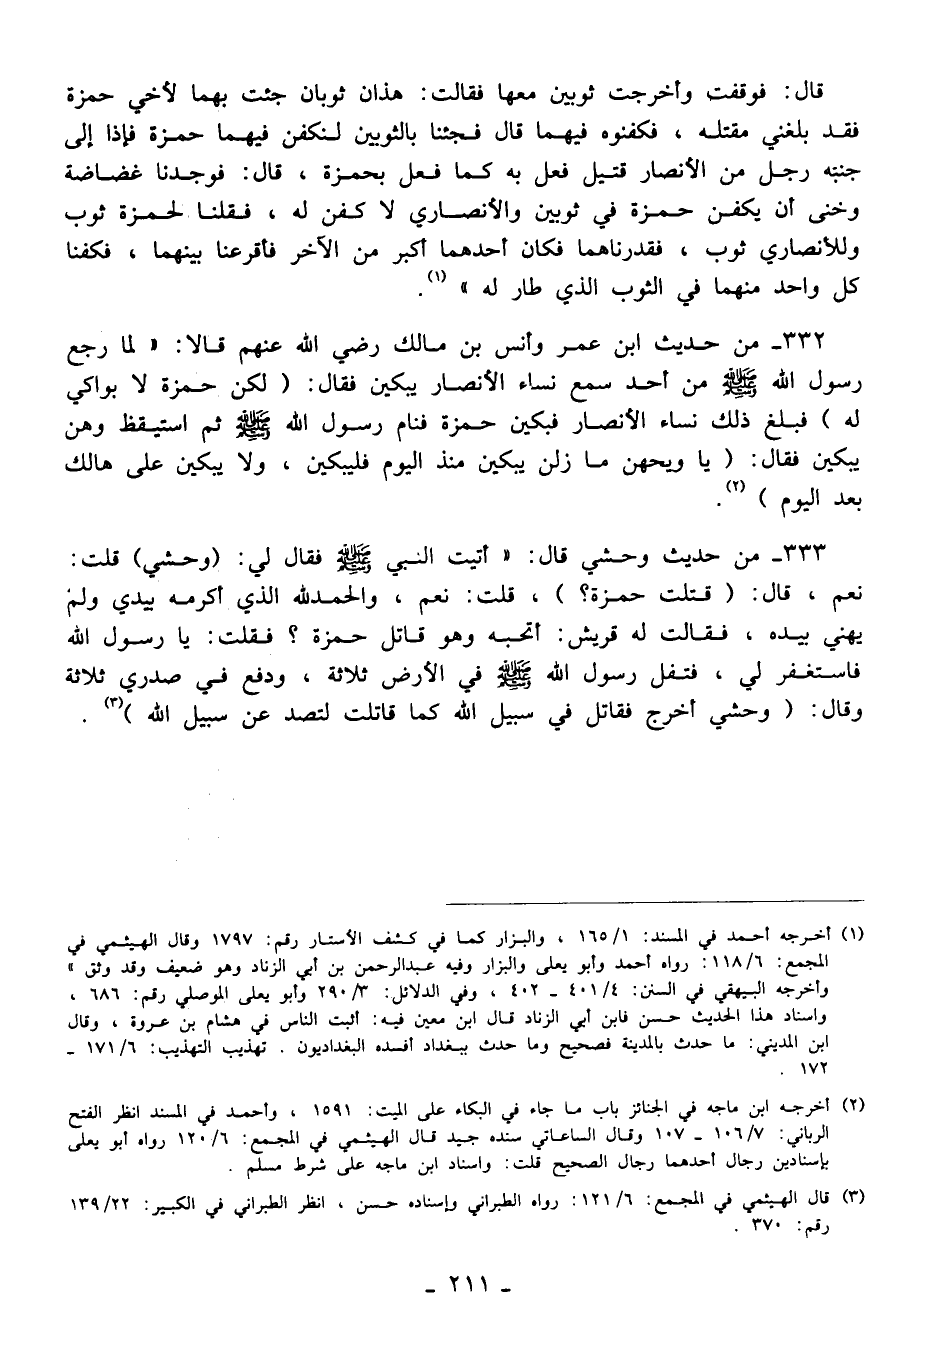 قال: فوقفت وأخرجت ثوبين معها فقالت: هذان ثوبان جئت بهما لأخي حمزة
فقد بلغني مقتله ، فكفنوه فيهما قال فجئنا بالثوبين لنكفن فيهما حمزة فإذا إلى
جنبه رجل من الأنصار قتيل فعل به كما فعل بحمزة ، قال: فوجدنا غضاضة
وخنى أن يكفن حمزة في ثوبين والأنصاري لا كفن له ، فقلنا لحمزة ثوب
وللأنصاري ثوب ، فقدرناهما فكان أحدهما أكبر من الآخر فأقرعنا بينهما ، فكفنا
كل واحد منهما في الثوب الذي طار له » (١).
٣٣٢ـ من حديث ابن عمر وأنس بن مالك رضي الله عنهم قالا: « لما رجع
رسول الله ﷺ من أحد سمع نساء الأنصار يبكين فقال: ( لكن حمزة لا بواكي
له ) فبلغ ذلك نساء الأنصار فبكين حمزة فنام رسول الله ﷺ ثم استيقظ وهن
يبكين فقال: ( يا ويحهن ما زلن يبكين منذ اليوم فليبكين ، ولا يبكين على هالك
بعد اليوم ) (٢).
٣٣٣ـ من حديث وحشي قال: « أتيت النبي ﷺ فقال لي: (وحشي) قلت:
نعم ، قال: ( قتلت حمزة؟ ) ، قلت: نعم ، والحمدلله الذي أكرمه بيدي ولم
يهني بيده ، فقالت له قريش: أتحبه وهو قاتل حمزة ؟ فقلت: يا رسول الله
فاستغفر لي ، فتفل رسول الله ﷺ في الأرض ثلاثة ، ودفع في صدري ثلاثة
وقال: ( وحشي أخرج فقاتل في سبيل الله كما قاتلت لتصد عن سبيل الله )(٣) .
(١) أخرجه أحمد في المسند: ١٦٥/١ ، والبزار كما في كشف الأستار رقم: ١٧٩٧ وقال الهيثمي في
المجمع: ١١٨/٦: رواه أحمد وأبو يعلى والبزار وفيه عبدالرحمن بن أبي الزناد وهو ضعيف وقد وثق »
وأخرجه البيهقي في السنن: ٤٠١/٤ ـ ٤٠٢ ، وفي الدلائل: ٢٩٠/٣ وأبو يعلى الموصلي رقم: ٦٨٦ ،
واسناد هذا الحديث حسن فابن أبي الزناد قال ابن معين فيه: أثبت الناس في هشام بن عروة ، وقال
ابن المديني: ما حدث بالمدينة فصحيح وما حدث ببغداد أفسده البغداديون . تهذيب التهذيب: ١٧١/٦ ـ
١٧٢ .
(٢) أخرجه ابن ماجه في الجنائز باب ما جاء في البكاء على الميت: ١٥٩١ ، وأحمد في المسند انظر الفتح
الرباني: ١٠٦/٧ ـ ١٠٧ وقال الساعاتي سنده جيد قال الهيثمي في المجمع: ١٢٠/٦ رواه أبو يعلى
بإسنادين رجال أحدهما رجال الصحيح قلت: واسناد ابن ماجه على شرط مسلم .
(٣) قال الهيثمي في المجمع: ١٢١/٦: رواه الطبراني وإسناده حسن ، انظر الطبراني في الكبير: ١٣٩/٢٢
رقم: ٣٧٠ .
ـ ٢١١ ـ